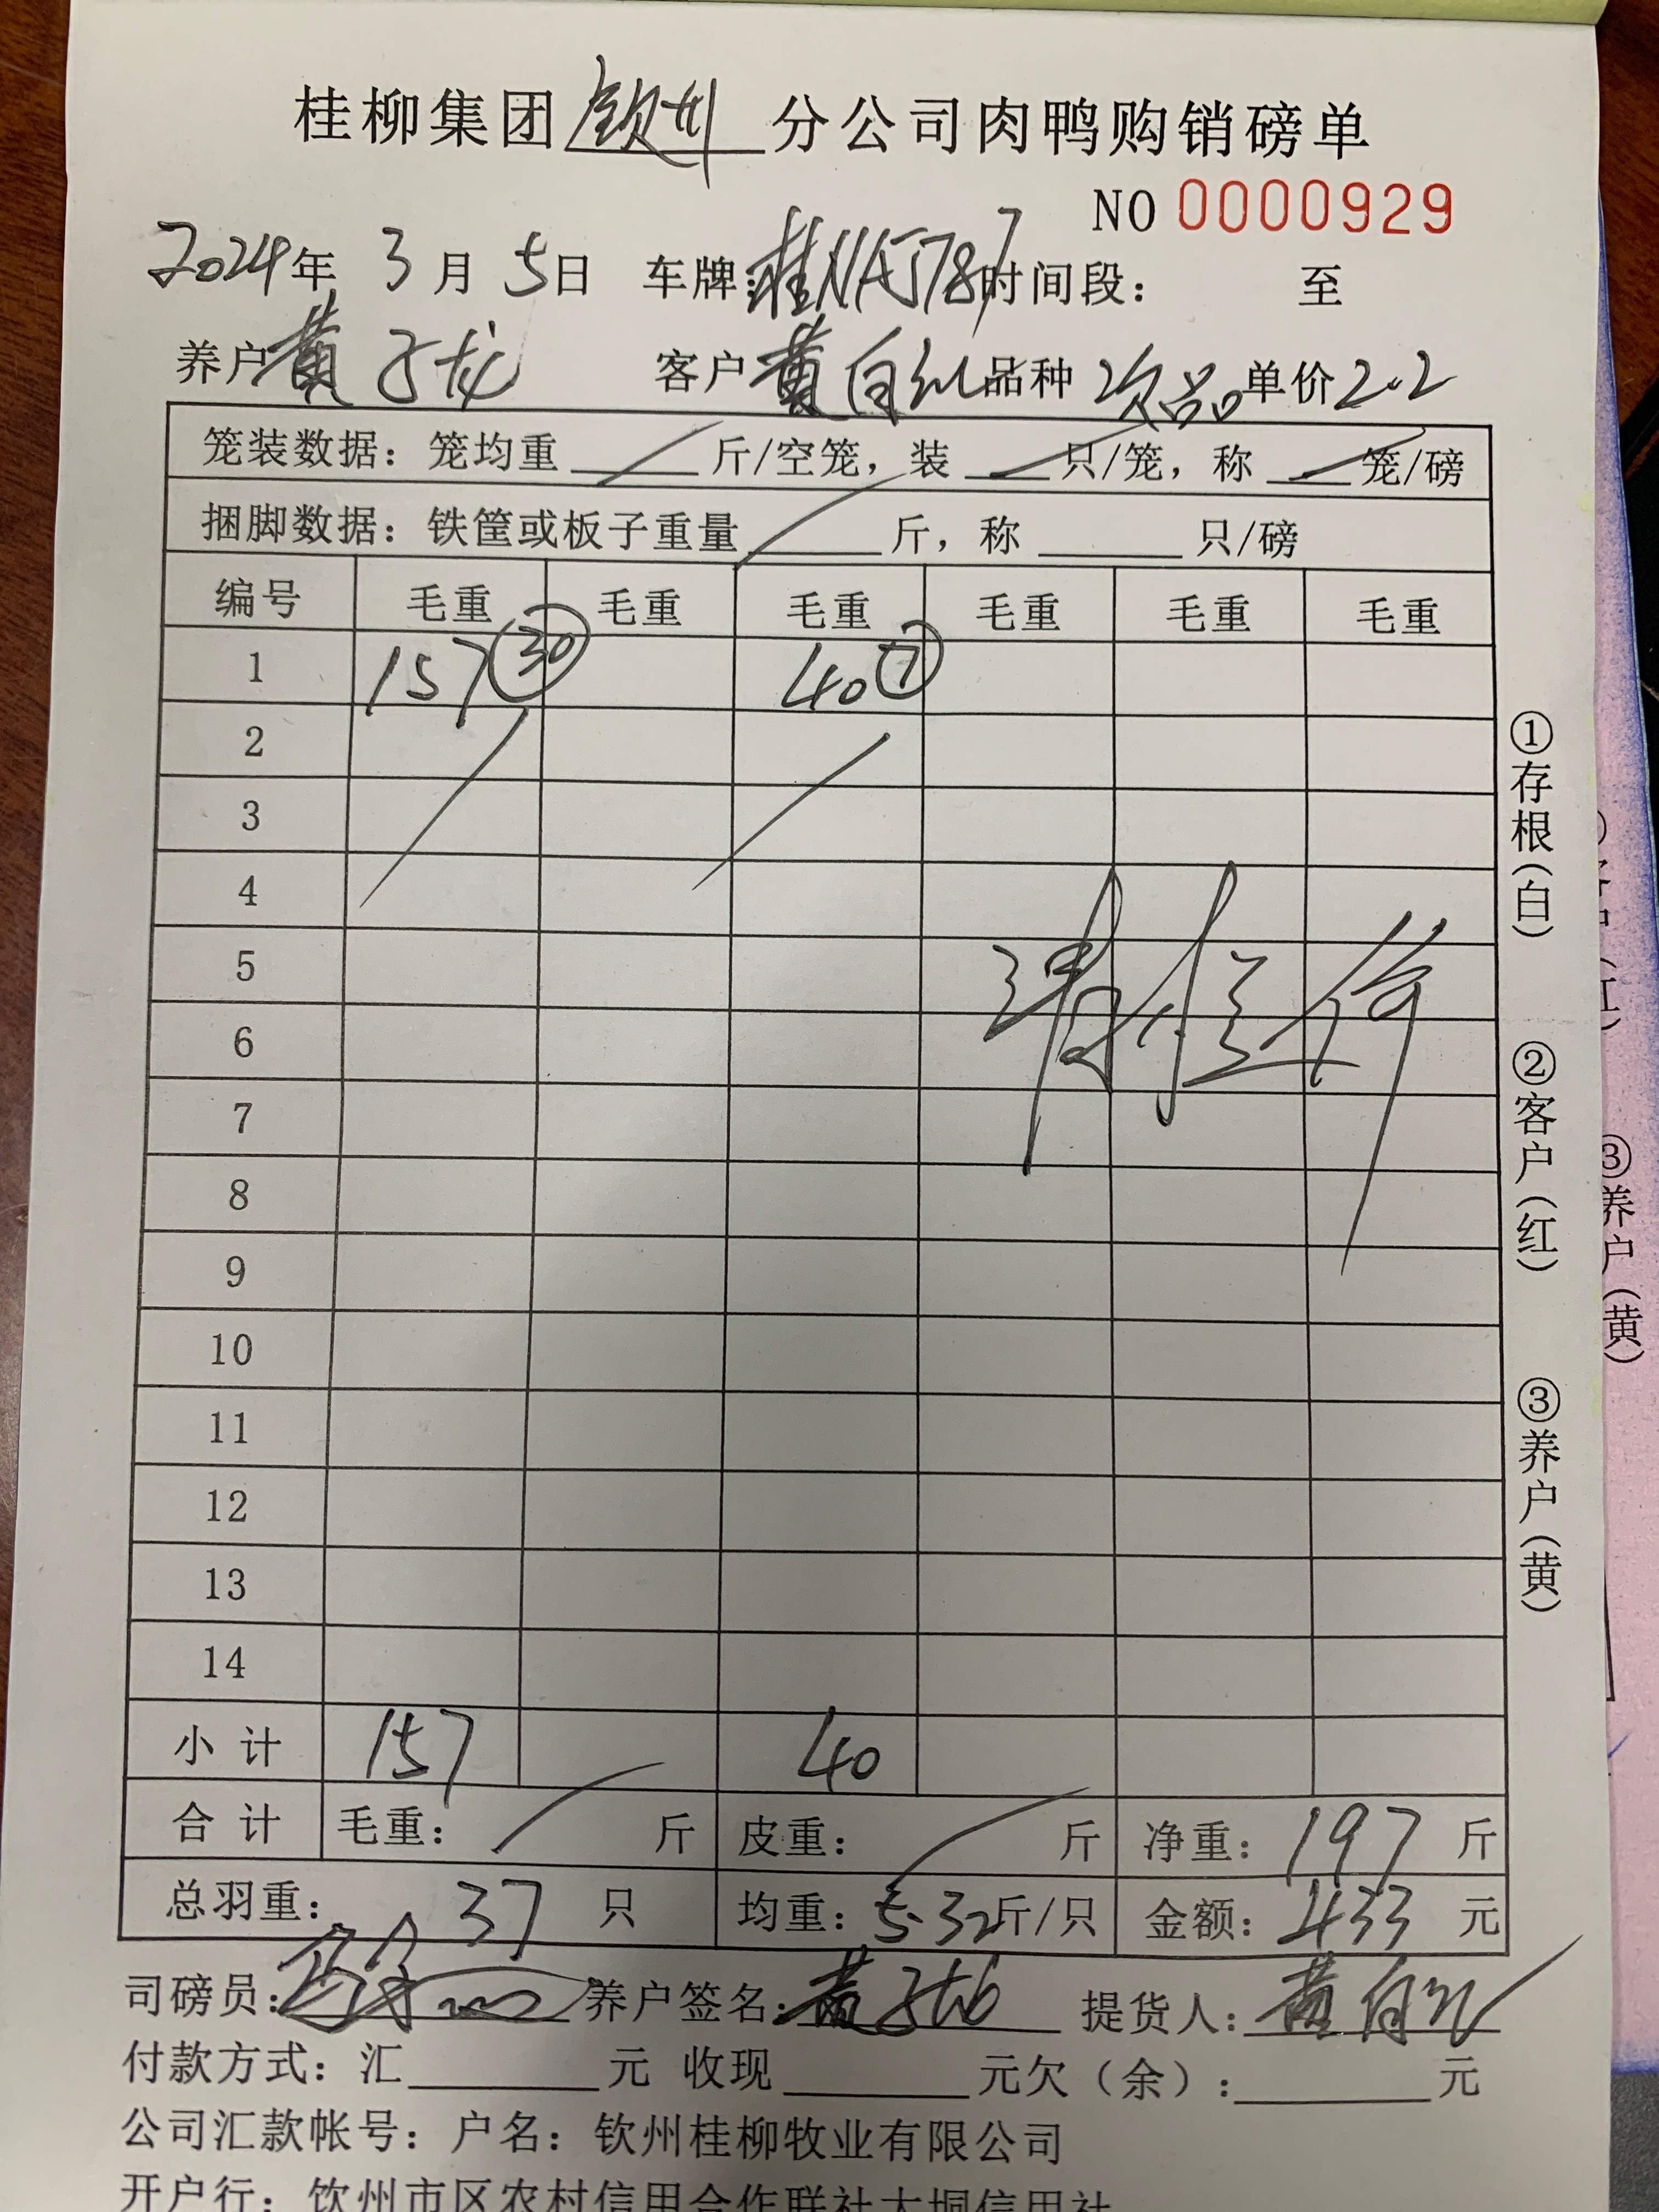 桂柳集团钦州分公司肉鸭购销磅单
NO 0000929
2024年 3月 5日 车牌:桂NAJ787时间段: 至
养户黄子龙 客户黄自红品种次品单价2.2
笼装数据: 笼均重 斤/空笼, 装 只/笼, 称 笼/磅
捆脚数据: 铁筐或板子重量 斤, 称 只/磅
编号 毛重 毛重 毛重 毛重 毛重 毛重
1 157 30 40 7
2
3
4
5
6
7
8
9
10
11
12
13
14
小 计 157 40
合 计 毛重: 斤 皮重: 斤 净重: 197 斤
总羽重: 37 只 均重: 5.32斤/只 金额: 433 元
司磅员: 养户签名: 黄子龙 提货人: 黄自红
付款方式: 汇 元 收现 元欠(余): 元
公司汇款帐号: 户名: 钦州桂柳牧业有限公司
开户行: 钦州市区农村信用合作联社大垌信用社
①存根(白)
②客户(红)
③养户(黄)
③养户(黄)